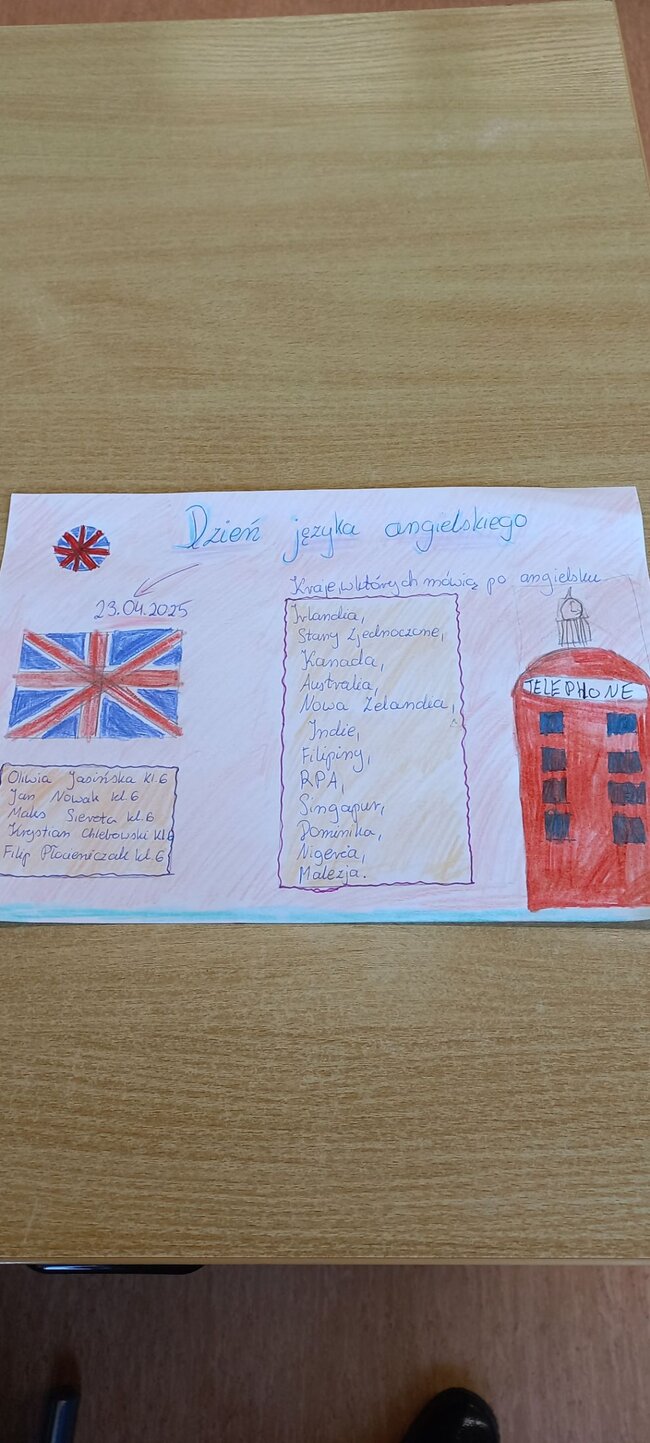 Dzień języka angielskiego
23.04.2025
Kraje, w których mówią po angielsku
Irlandia,
Stany Zjednoczone,
Kanada,
Australia,
Nowa Zelandia,
Indie,
Filipiny,
RPA,
Singapur,
Dominika,
Nigeria,
Malezja.
TELEPHONE
Oliwia Jasińska kl.6
Jan Nowak kl.6
Maks Sierota kl.6
Krystian Chlebowski kl.6
Filip Płócieniczak kl.6